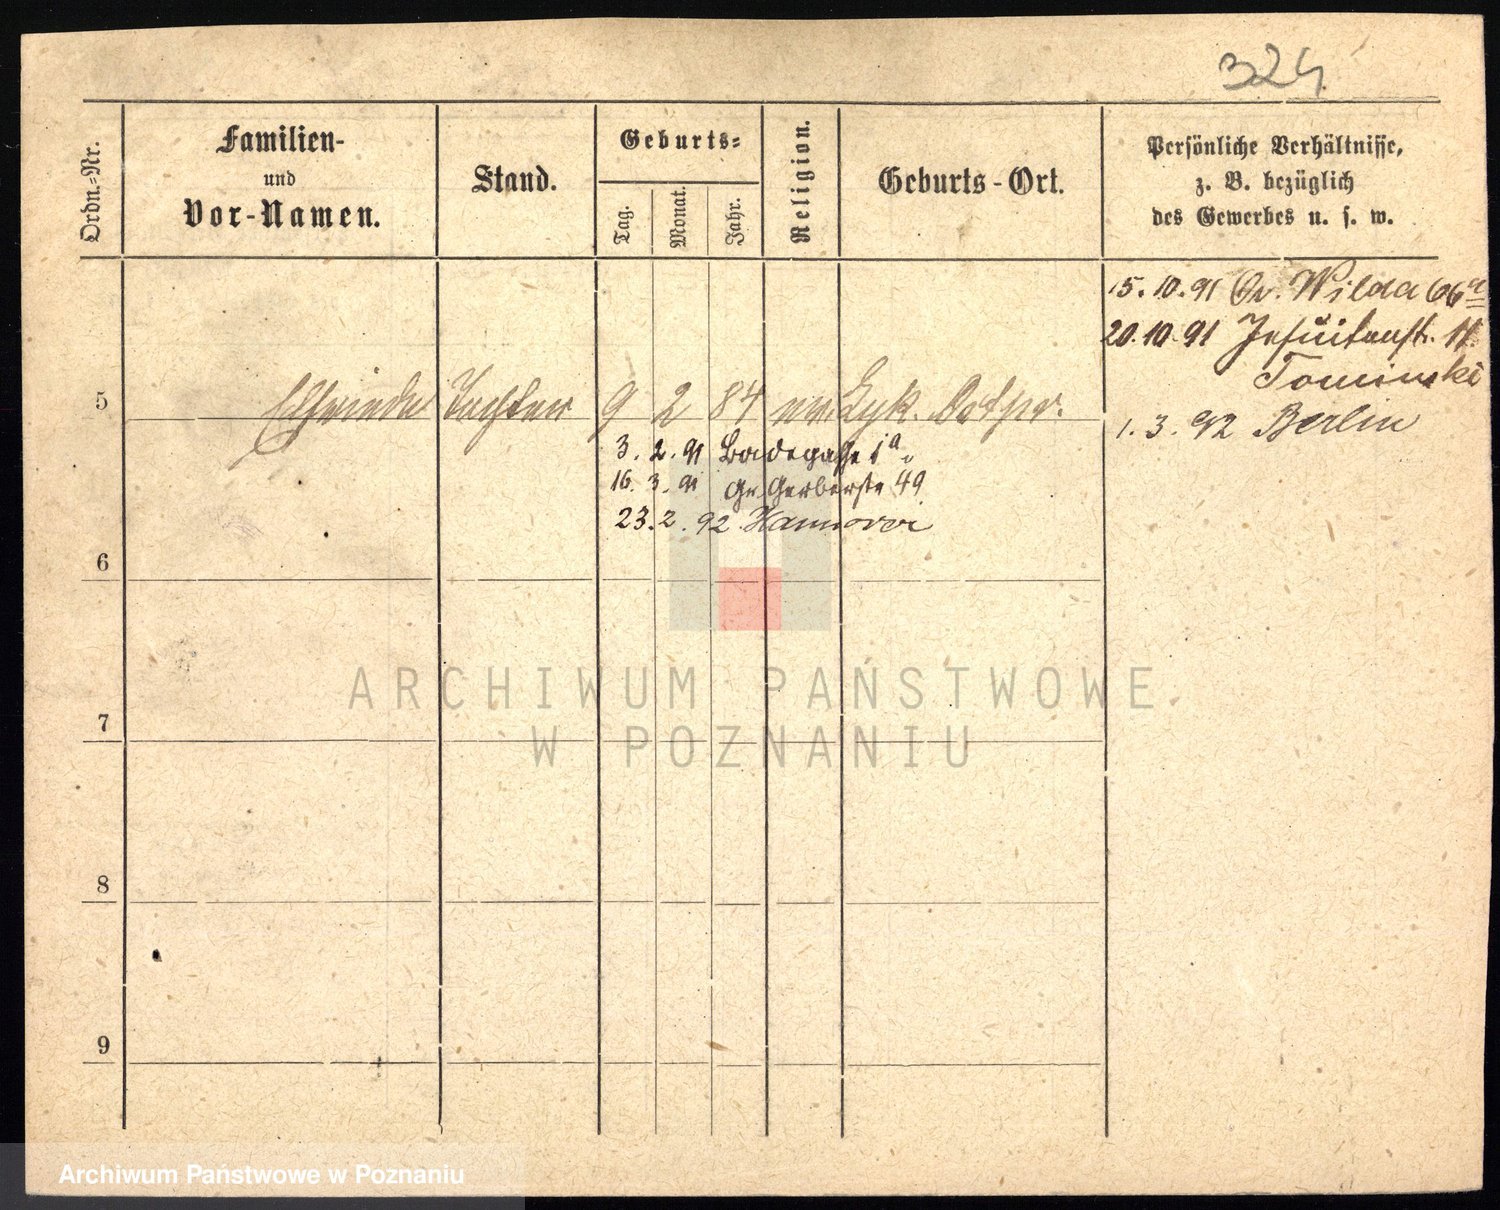 324.
Ordn.-Nr.
Familien-
und
Vor-Namen.
Stand.
Geburts-
Tag.
Monat.
Jahr.
Religion.
Geburts-Ort.
Persönliche Verhältnisse,
z. B. bezüglich
des Gewerbes u. s. w.
15.10.91 Gr. Wilda 66a
20.10.91 Jesuitenstr. 11.
Tominski
1.3.92 Berlin
5 Elfriede Tochter 9 2 84 ev. Lyk. Ostpr.
3.2.91 Badegasse 1a
16.3.91 Gr. Gerberstr 49
23.2.92 Hannover
6
7
8
9
ARCHIWUM PAŃSTWOWE
W POZNANIU
Archiwum Państwowe w Poznaniu